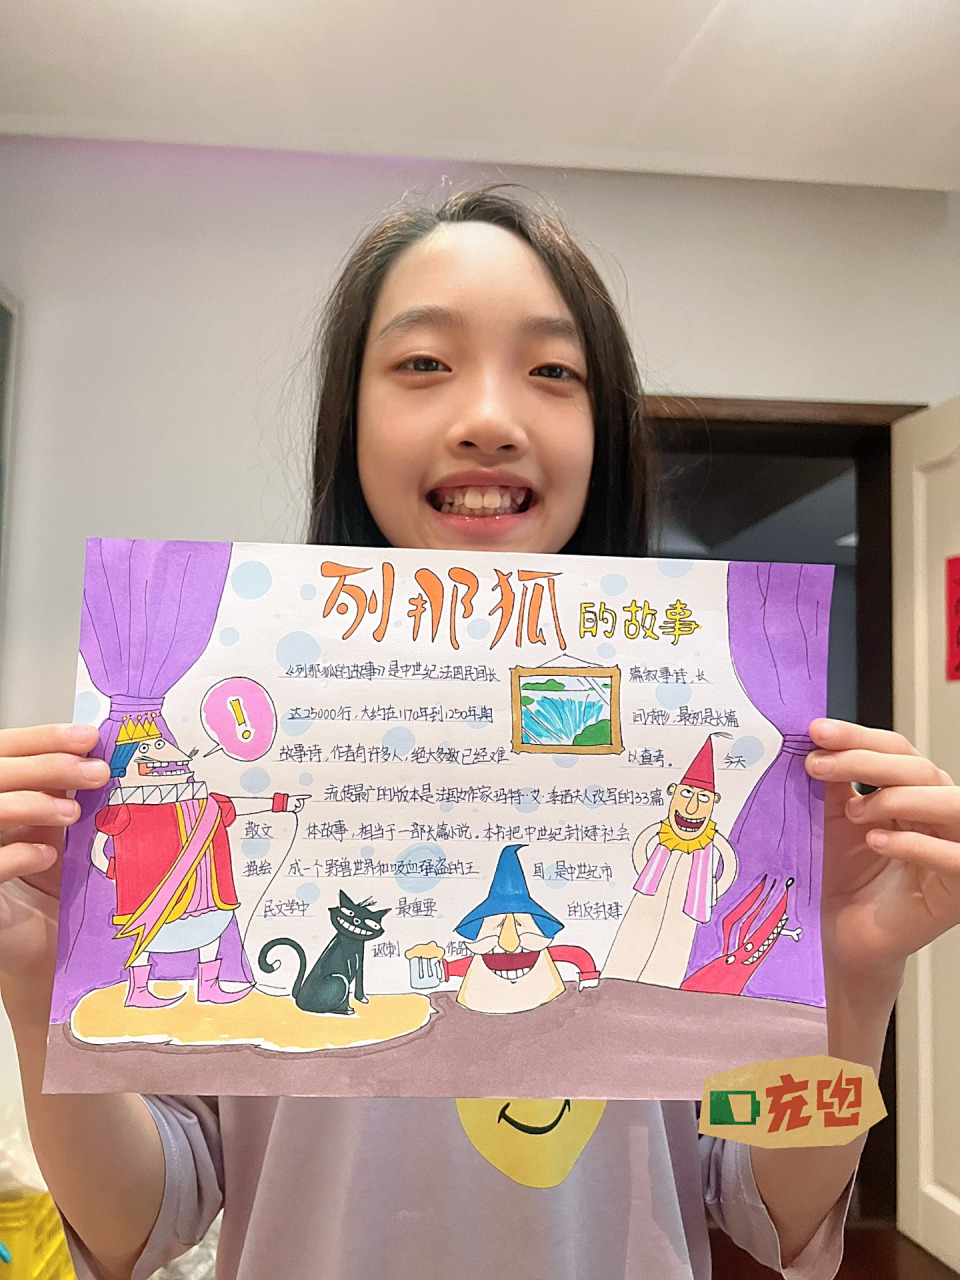 列那狐的故事
《列那狐的故事》是中世纪法国民间长篇叙事诗,长
达25000行,大约在1170年到1250年期间成形,最初是长篇
故事诗,作者有许多人,绝大多数已经难以查考。今天
流传最广的版本是法国女作家玛特·艾·季西夫人改写的33篇
散文体故事,相当于一部长篇小说。本书把中世纪封建社会
描绘成一个野兽世界和吸血强盗的王国,是中世纪市
民文学中最重要的反封建
讽刺作品
!
充电